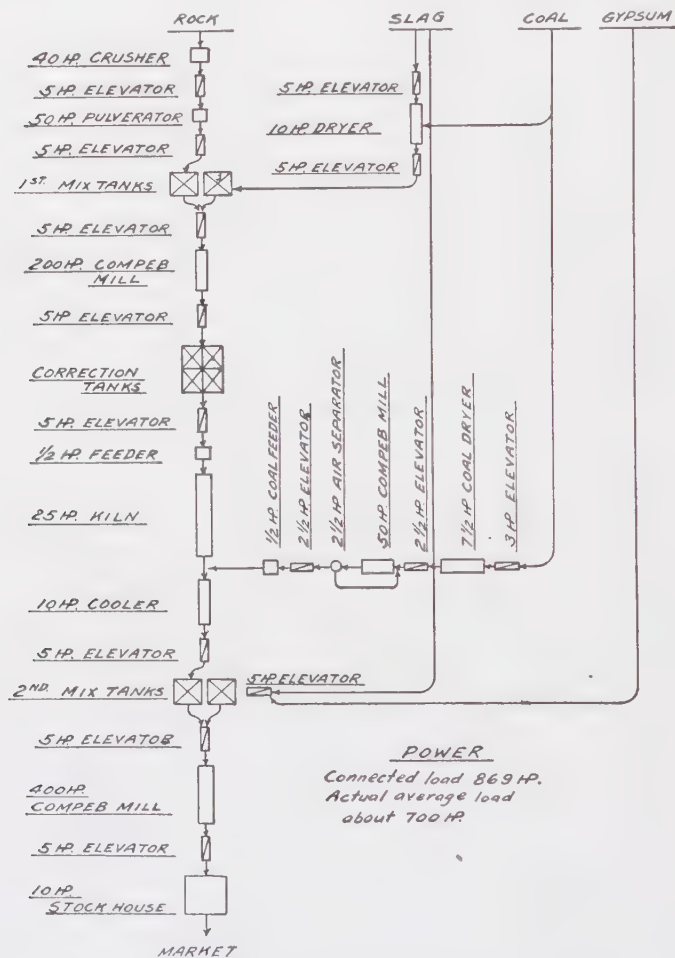 ROCK
SLAG
COAL
GYPSUM
40 HP. CRUSHER
5 HP. ELEVATOR
50 HP. PULVERATOR
5 HP. ELEVATOR
1ST. MIX TANKS
5 HP. ELEVATOR
200 HP. COMPEB
MILL
5 HP ELEVATOR
CORRECTION
TANKS
5 HP. ELEVATOR
1/2 HP. FEEDER
25 HP. KILN
10 HP. COOLER
5 HP. ELEVATOR
2ND. MIX TANKS
5 HP. ELEVATOR
400 HP.
COMPEB MILL
5 HP. ELEVATOR
10 HP.
STOCK HOUSE
MARKET
5 HP. ELEVATOR
10 HP. DRYER
5 HP. ELEVATOR
1/2 HP. COAL FEEDER
2 1/2 HP. ELEVATOR
2 1/2 HP. AIR SEPARATOR
50 HP. COMPEB MILL
2 1/2 HP. ELEVATOR
7 1/2 HP. COAL DRYER
3 HP. ELEVATOR
5 HP. ELEVATOR
POWER
Connected load 869 HP.
Actual average load
about 700 HP.